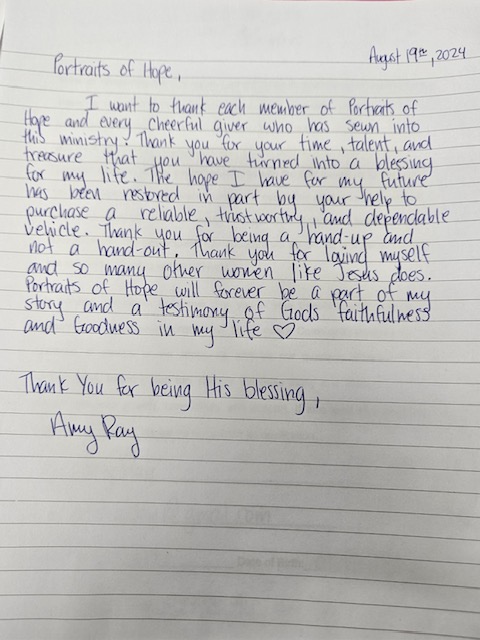 August 19th, 2024
Portraits of Hope,
I want to thank each member of Portraits of
Hope and every cheerful giver who has sewn into
this ministry. Thank you for your time, talent, and
treasure that you have turned into a blessing
for my life. The hope I have for my future
has been restored in part by your help to
purchase a reliable, trustworthy, and dependable
vehicle. Thank you for being a hand-up and
not a hand-out. Thank you for loving myself
and so many other women like Jesus does.
Portraits of Hope will forever be a part of my
story and a testimony of Gods faithfulness
and Goodness in my life ♡
Thank You for being His blessing,
Amy Ray